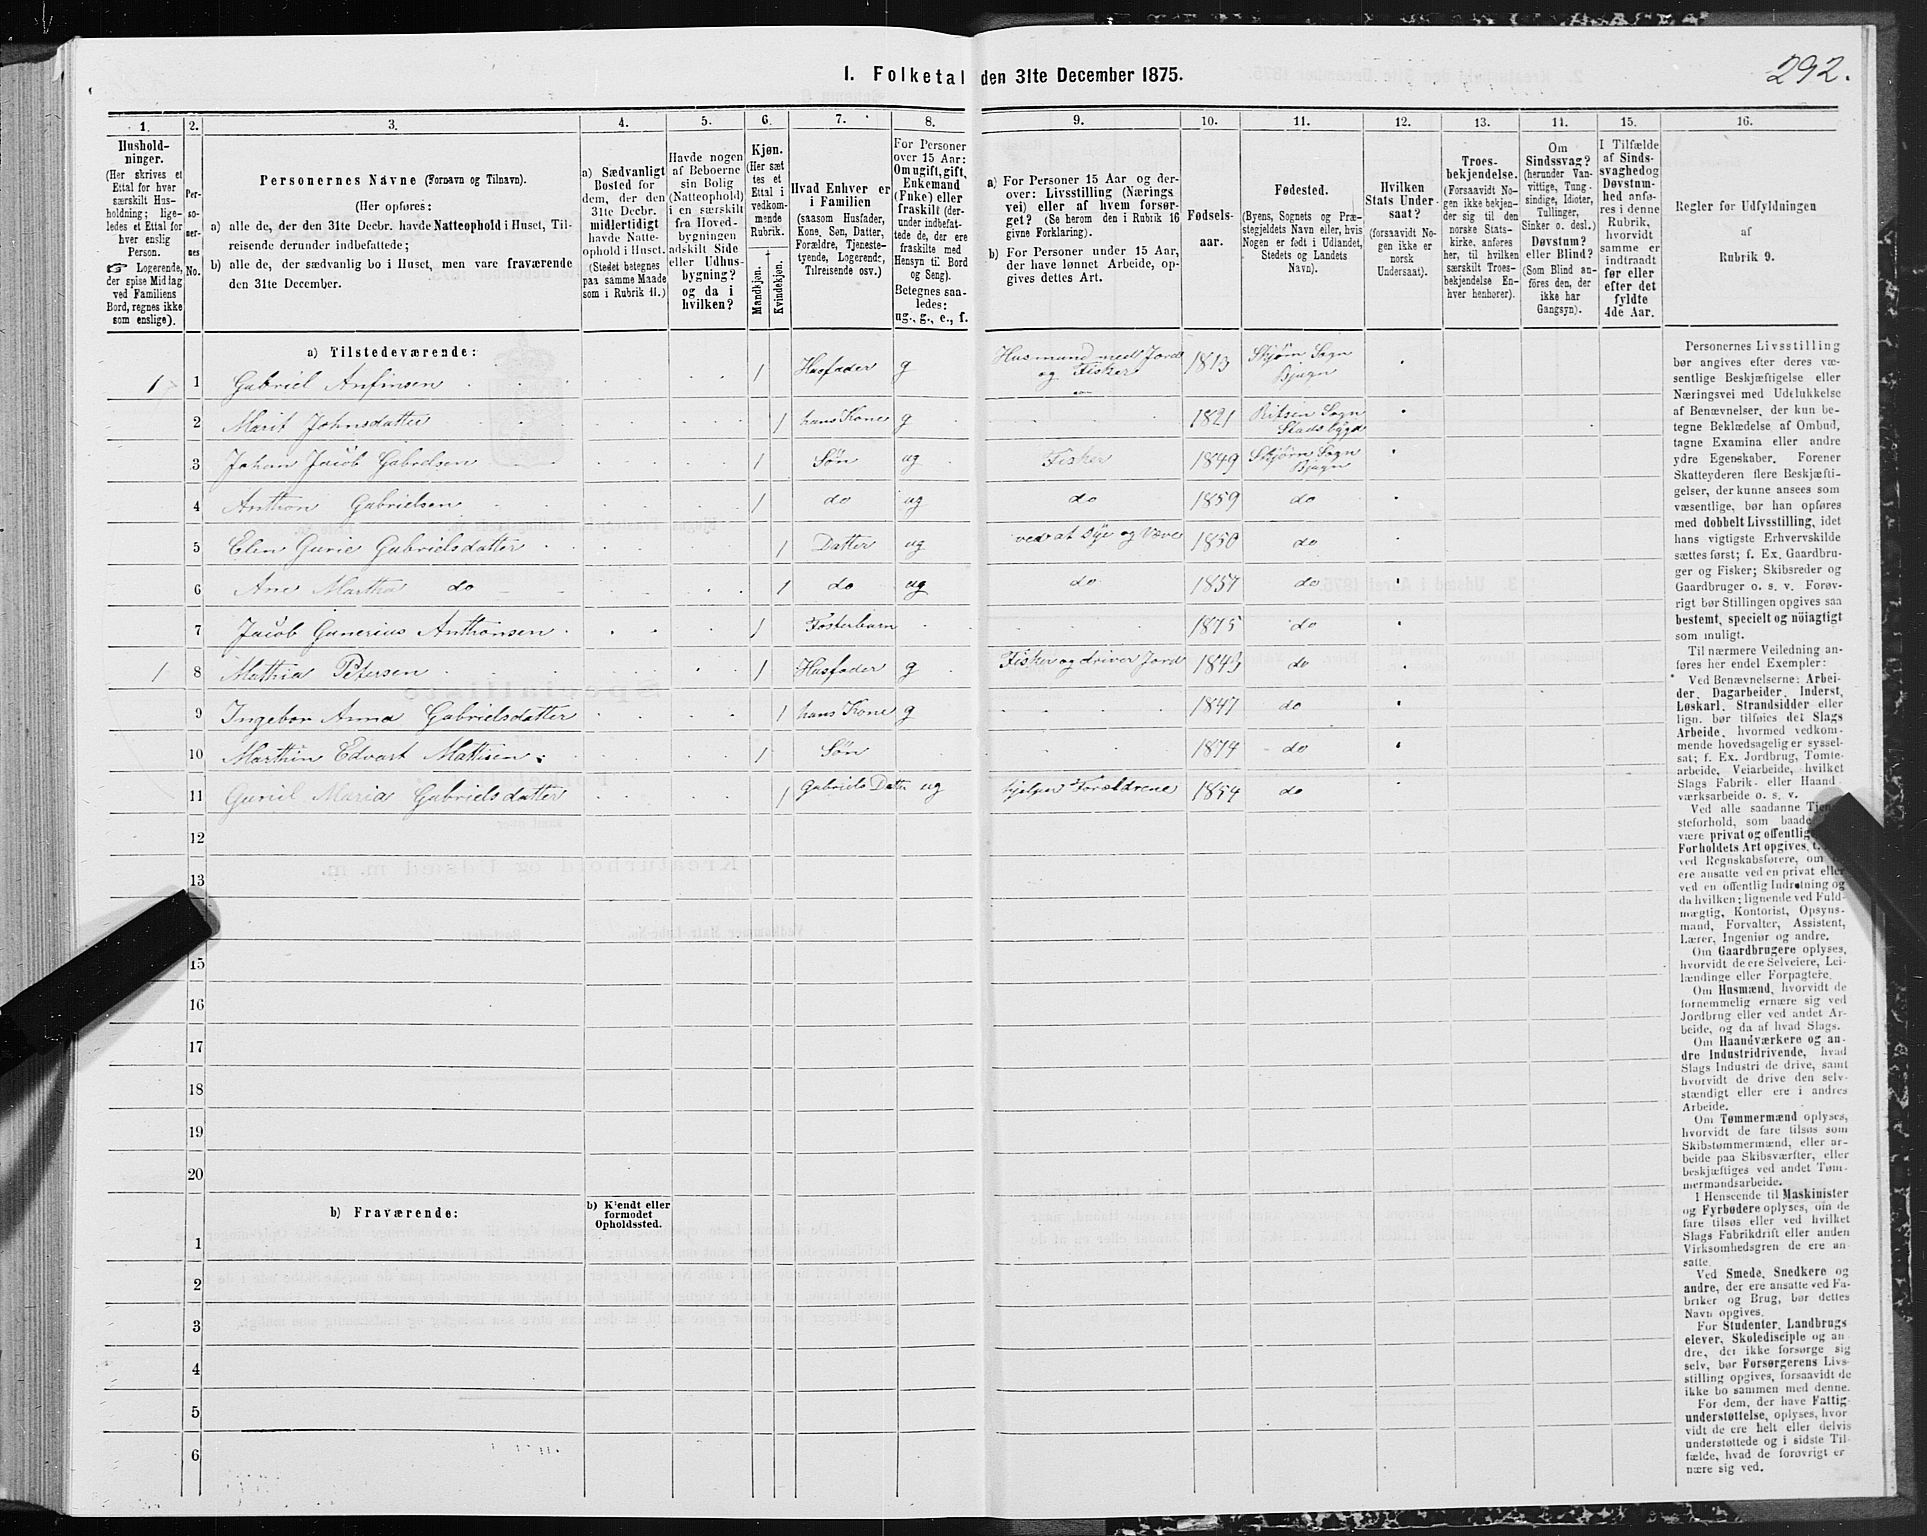 292.
I. Folketal den 31te December 1875.
1. 2. 3. 4. 5. 6. 7. 8. 9. 10. 11. 12. 13. 14. 15. 16.
Hushold-
ninger.
(Her skrives et
Ettal for hver
særskilt Hus-
holdning; lige-
ledes et Ettal for
hver enslig
Person.
☞ Logerende,
der spise Middag
ved Familiens
Bord, regnes ikke
som enslige).
Per-
so-
ner-
nes
No.
Personernes Navne (Fornavn og Tilnavn).
(Her opføres:
a) alle de, der den 31te Decbr. havde Natteophold i Huset, Til-
reisende derunder indbefattede;
b) alle de, der sædvanlig bo i Huset, men vare fraværende
den 31te December.
a) Sædvanligt
Bosted for
dem, der den
31te Decbr.
midlertidigt
havde Natte-
ophold i Huset.
(Stedet betegnes
paa samme Maade
som i Rubrik 11.)
Havde nogen
af Beboerne
sin Bolig
(Natteophold)
i en særskilt
fra Hoved-
bygningen
adskilt Side
eller Udhus-
bygning?
og da i
hvilken?
Kjøn.
(Her sæt-
tes et
Ettal i
vedkom-
mende
Rubrik.
Mandkjøn.
Kvindekjøn.
Hvad Enhver er
i Familien
(saasom Husfader,
Kone, Søn, Datter,
Forældre, Tjeneste-
tyende, Logerende,
Tilreisende osv.)
For Personer
over 15 Aar:
Om ugift, gift,
Enkemand
(Enke) eller
fraskilt (der-
under indbefat-
tede de, der ere
fraskilte med
Hensyn til Bord
og Seng).
Betegnes saa-
ledes:
ug., g., e., f.
a) For Personer 15 Aar og der-
over: Livsstilling (Nærings
vei) eller af hvem forsør-
get? (Se herom den i Rubrik 16
givne Forklaring).
b) For Personer under 15 Aar,
der have lønnet Arbeide, op-
gives dettes Art.
Fødsels-
aar.
Fødested.
(Byens, Sognets og Præ-
stegjeldets Navn eller, hvis
Nogen er født i Udlandet,
Stedets og Landets
Navn).
Hvilken
Stats Under-
saat?
(forsaavidt No-
gen ikke er
norsk
Undersaat).
Troes-
bekjendelse.
(Forsaavidt No-
gen ikke bekjen-
der sig til den
norske Stats-
kirke, anføres
her, til hvilken
særskilt Troes-
bekjendelse En-
hver henhører).
Om
Sindssvag?
(herunder Van-
vittige, Tung-
sindige, Idioter,
Tullinger,
Sinker o. desl.)
Døvstum?
eller Blind?
(Som Blind an-
føres den, der
ikke har
Gangsyn).
I Tilfælde
af Sinds-
svaghed og
Døvstum-
hed anfø-
res i denne
Rubrik,
hvorvidt
samme er
indtraadt
før eller
efter det
fyldte
4de Aar.
Regler for Udfyldningen
af
Rubrik 9.
a) Tilstedeværende:
1 1 Gabriel Anfinsen 1 Husfader g Husmand med Jord og Fisker 1813 Skjørn Sogn Bjugn
2 Marit Johnsdatter 1 hans Kone g 1821 Ritsen Sogn Stadsbygd
3 Johan Jacob Gabrielsen 1 Søn ug Fisker 1849 Skjørn Sogn Bjugn
4 Anthon Gabrielsen 1 do ug do 1859 do
5 Elen Gurie Gabrielsdatter 1 Datter ug ved at Sye og Væve 1850 do
6 Ane Martha do 1 do ug do 1857 do
7 Jacob Gunerius Anthonsen 1 Fosterbarn 1875 do
1 8 Mathia Petersen 1 Husfader g Fisker og driver Jord 1843 do
9 Ingebor Anna Gabrielsdatter 1 hans Kone g 1847 do
10 Marthin Edvart Mattisen 1 Søn 1874 do
11 Guriel Maria Gabrielsdatter 1 Gabriels Datter ug hjelper Forældrene 1854 do
12
13
15
16
17
18
19
20
b) Fraværende:
b) Kjendt eller
formodet
Opholdssted.
1
2
3
4
5
6
Personernes Livsstilling
bør angives efter deres væ-
sentlige Beskjæftigelse eller
Næringsvei med Udelukkelse
af Benævnelser, der kun be-
tegne Beklædelse af Ombud,
tagne Examina eller andre
ydre Egenskaber. Forener
Skatteyderen flere Beskjæfti-
gelser, der kunne ansees som
væsentlige, bør han opføres
med dobbelt Livsstilling, idet
hans vigtigste Erhvervskilde
sættes først; f. Ex. Gaardbru-
ger og Fisker; Skibsreder og
Gaardbruger o. s. v. Forøv-
rigt bør Stillingen opgives saa
bestemt, specielt og nöiagtigt
som muligt.
Til nærmere Veiledning an-
føres her endel Exempler:
Ved Benævnelserne: Arbei-
der, Dagarbeider, Inderst,
Løskarl, Strandsidder eller
lign. bør tilføies det Slags
Arbeide, hvormed vedkom-
mende hovedsagelig er syssel-
sat; f. Ex. Jordbrug, Tomte-
arbeide, Veiarbeide, hvilket
Slags Fabrik- eller Haand-
værksarbeide o. s. v.
Ved alle saadanne
steforhold, som baade
være privat og offentlig
Forholdets Art opgives,
ved Regnskabsførere, om
ere ansatte ved en privat eller
ved en offentlig Indretning og
da hvilken; lignende ved Fuld-
mægtig, Kontorist, Opsyns-
mand, Forvalter, Assistent,
Lærer, Ingeniør og andre.
Om Gaardbrugere oplyses,
hvorvidt de ere Selveiere, Lei-
lændinge eller Forpagtere.
Om Husmænd, hvorvidt de
fornemmelig ernære sig ved
Jordbrug eller ved andet Ar-
beide, og da af hvad Slags.
Om Haandværkere og an-
dre Industridrivende, hvad
Slags Industri de drive, samt
hvorvidt de drive den selv-
stændigt eller ere i andres
Arbeide.
Om Tømmermænd oplyses,
hvorvidt de fare tilsøs som
Skibstømmermænd, eller ar-
beide paa Skibsværfter, eller
beskjæftiges ved andet Tøm-
mermandsarbeide.
I Henseende til Maskinister
og Fyrbødere oplyses, om de
fare tilsøs eller ved hvilket
Slags Fabrikdrift eller anden
Virksomhedsgren de ere an-
satte.
Ved Smede, Snedkere og
andre, der ere ansatte ved Fa-
briker og Brug, bør dettes
Navn opgives.
For Studenter, Landbrugs
elever, Skoledisciple og an-
dre, der ikke forsørge sig
selv, bør Forsørgerens Livs-
stilling opgives, forsaavidt de
ikke bo sammen med denne.
For dem, der have Fattig-
understøttelse, oplyses, hvor-
vidt de ere helt eller delvis
understøttede og i sidste Til-
fælde, hvad de forøvrigt er-
nære sig ved.